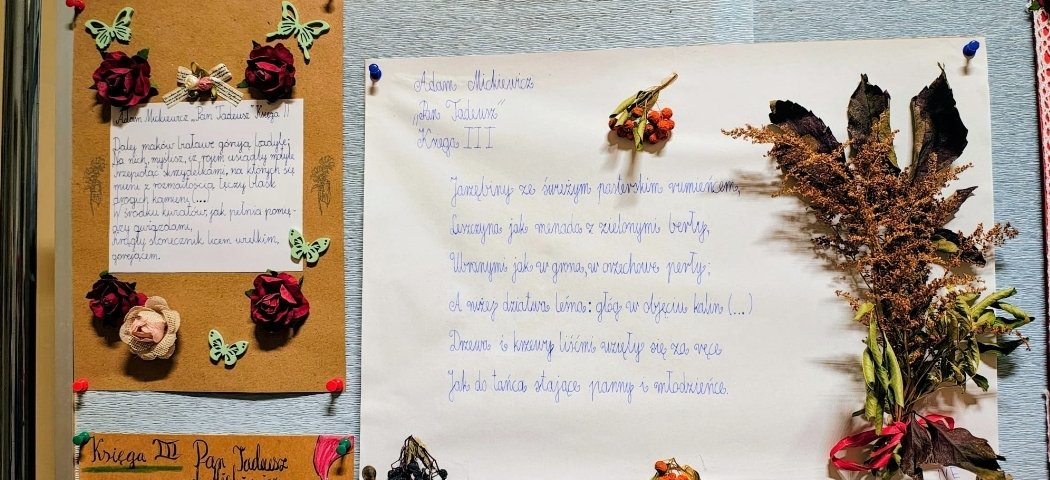 Adam Mickiewicz „Pan Tadeusz" Księga II
Dalej maków białawe górują badyle;
Na nich, myślisz, iż rojem usiadły motyle
Trzepiocąc skrzydełkami, na których się
mieni z rozmaitością tęczy blask
drogich kamieni (...)
W środku kwiatów, jak pełnia pomię-
dzy gwiazdami,
Krągły słonecznik licem wielkim,
gorejącem.
Księga III Pan Tadeusz
Adam Mickiewicz
„Pan Tadeusz"
Księga III
Jarzębiny ze świeżym pasterskim rumieńcem,
Leszczyna jak menada z zielonymi berły,
Ubranymi jak w grona, w orzechowe perły;
A niżej dziatwa leśna: głóg w objęciu kalin (...)
Drzewa i krzewy liśćmi wzięły się za ręce
Jak do tańca stające panny i młodzieńce.